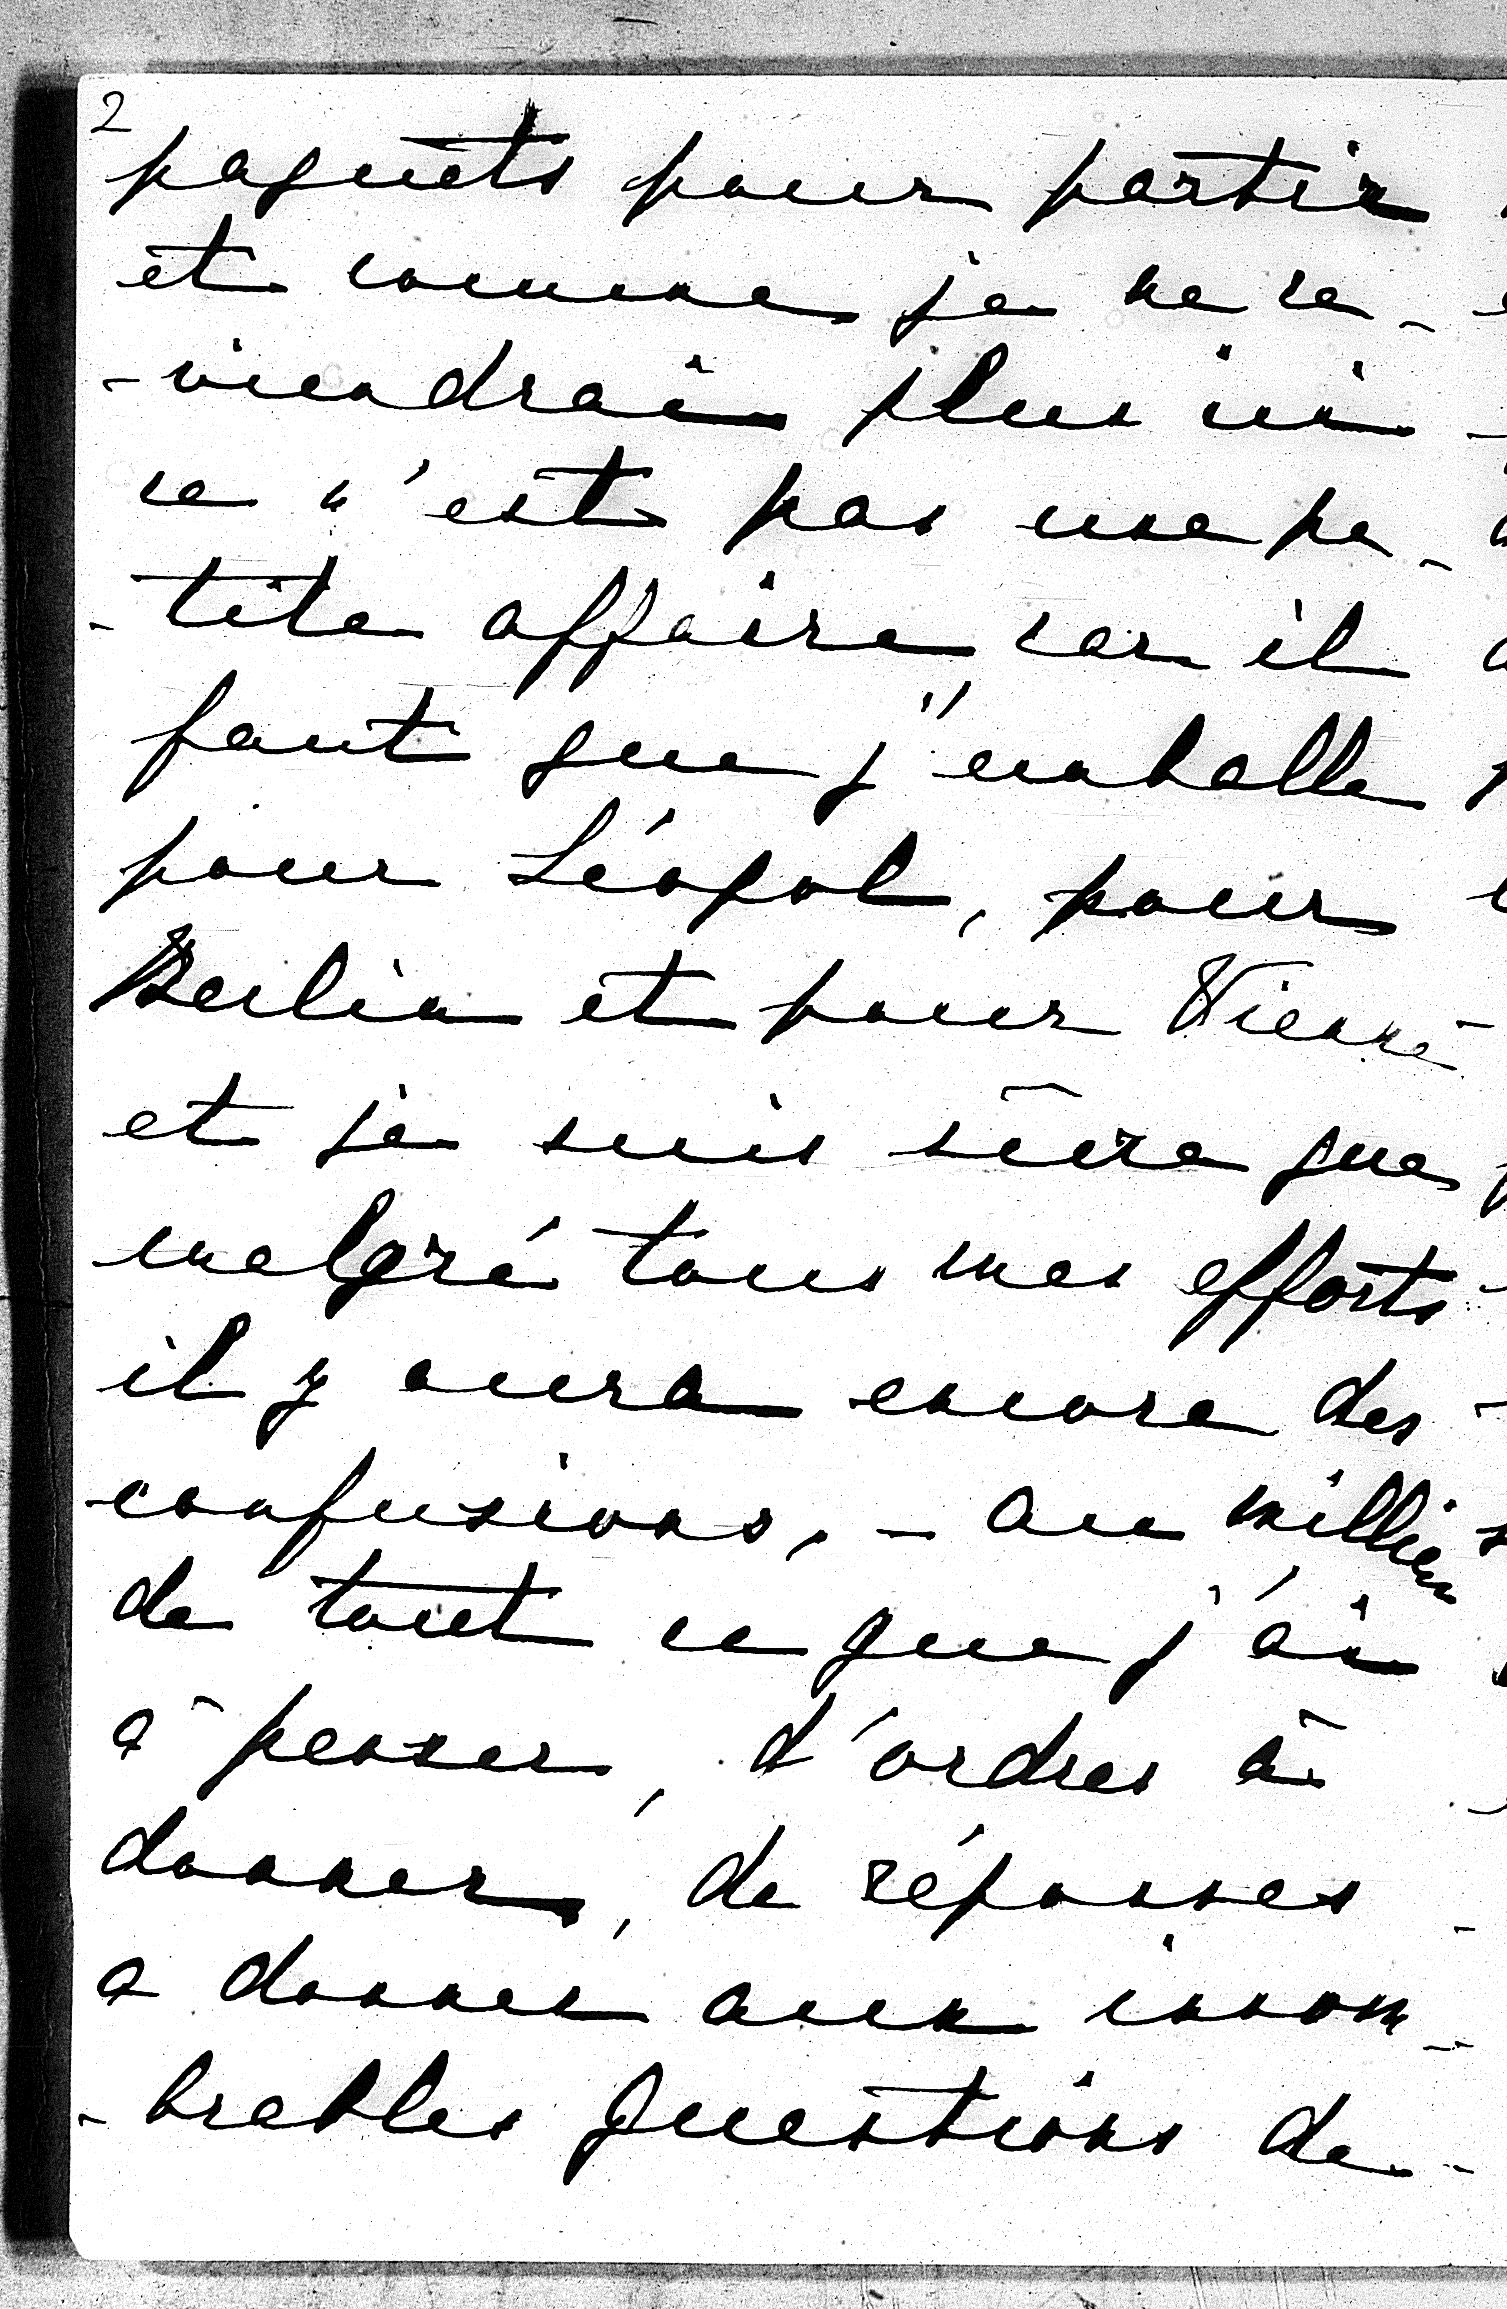 2
paquets pour partir
et comme je ne re-
-viendrai plus ici
ce n'est pas une pe-
-tite affaire, car il
faut que j'emballe
pour Léopol, pour
Berlin et pour Vienne
et je suis sûre que
malgré tous mes efforts
il y aura encore des
confusions. - Au millieu
de tout ce que j'ai
à penser, d'ordres à
donner, de réponses
a donner aux innom-
-brables questions de